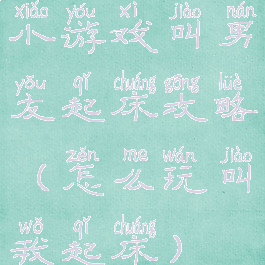 xiǎo yóu xì jiào nán
小游戏叫男
yǒu qǐ chuáng gōng lüè
友起床攻略
zěn me wán jiào
（怎么玩叫
wǒ qǐ chuáng
我起床）